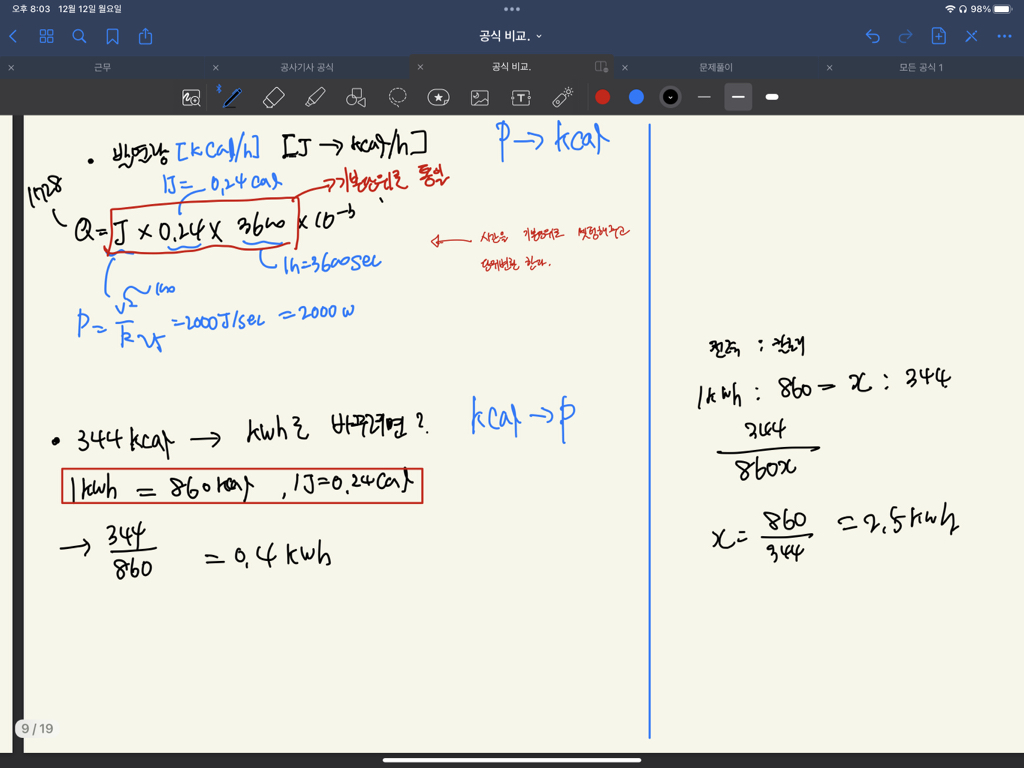 오후 8:03 12월 12일 월요일
98%
공식 비교.
근무
공사기사 공식
공식 비교.
문제풀이
모든 공식 1
• 발열량 [kcal/h] [J → kcal/h] P → kcal
1J = 0.24 cal → 기본단위로 통일
1728
Q = J × 0.24 × 3600 × 10⁻³
← 시간을 기본단위로 셋팅해주고
단위변환 한다.
1h = 3600sec
V² 100
P = — = 2000 J/sec = 2000 W
R 5
• 344 kcal → kwh로 바꾸려면? kcal → P
1kwh = 860 kcal, 1J = 0.24 cal
→ 344/860 = 0.4 kwh
전력 : 칼로리
1kwh : 860 = x : 344
344
860x
x = 860/344 = 2.5 kwh
9 / 19